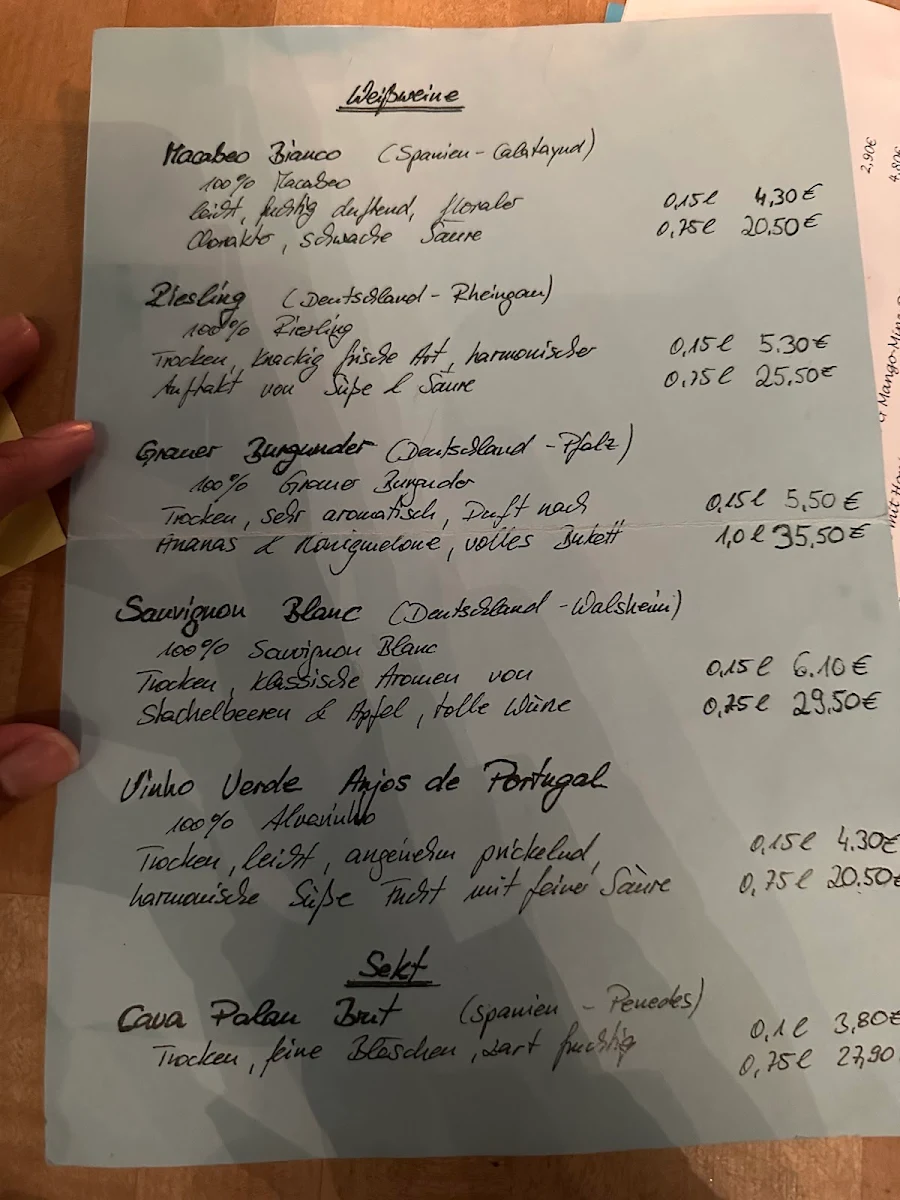 Weißweine
Macabeo Bianco (Spanien - Calatayud)
100% Macabeo
leicht, fruchtig duftend, floraler 0,15l 4,30€
Charakter, schwache Säure 0,75l 20,50€
Riesling (Deutschland - Rheingau)
100% Riesling
Trocken, knackig frische Art, harmonischer 0,15l 5.30€
Auftakt von Süße & Säure 0,75l 25,50€
Grauer Burgunder (Deutschland - Pfalz)
100% Grauer Burgunder
Trocken, sehr aromatisch, Duft nach 0,15l 5,50€
Ananas & Honigmelone, volles Bukett 1,0l 35,50€
Sauvignon Blanc (Deutschland - Walsheim)
100% Sauvignon Blanc
Trocken, klassische Aromen von 0,15l 6.10€
Stachelbeeren & Apfel, tolle Würze 0,75l 29,50€
Vinho Verde Anjos de Portugal
100% Alvarinho
Trocken, leicht, angenehm prickelnd, 0,15l 4.30€
harmonische Süße Frucht mit feiner Säure 0,75l 20.50€
Sekt
Cava Palau Brut (Spanien - Penedes) 0,1l 3,80€
Trocken, feine Bläschen, zart fruchtig 0,75l 27,90
2,90€
4,80€
Mango-Ming
mit